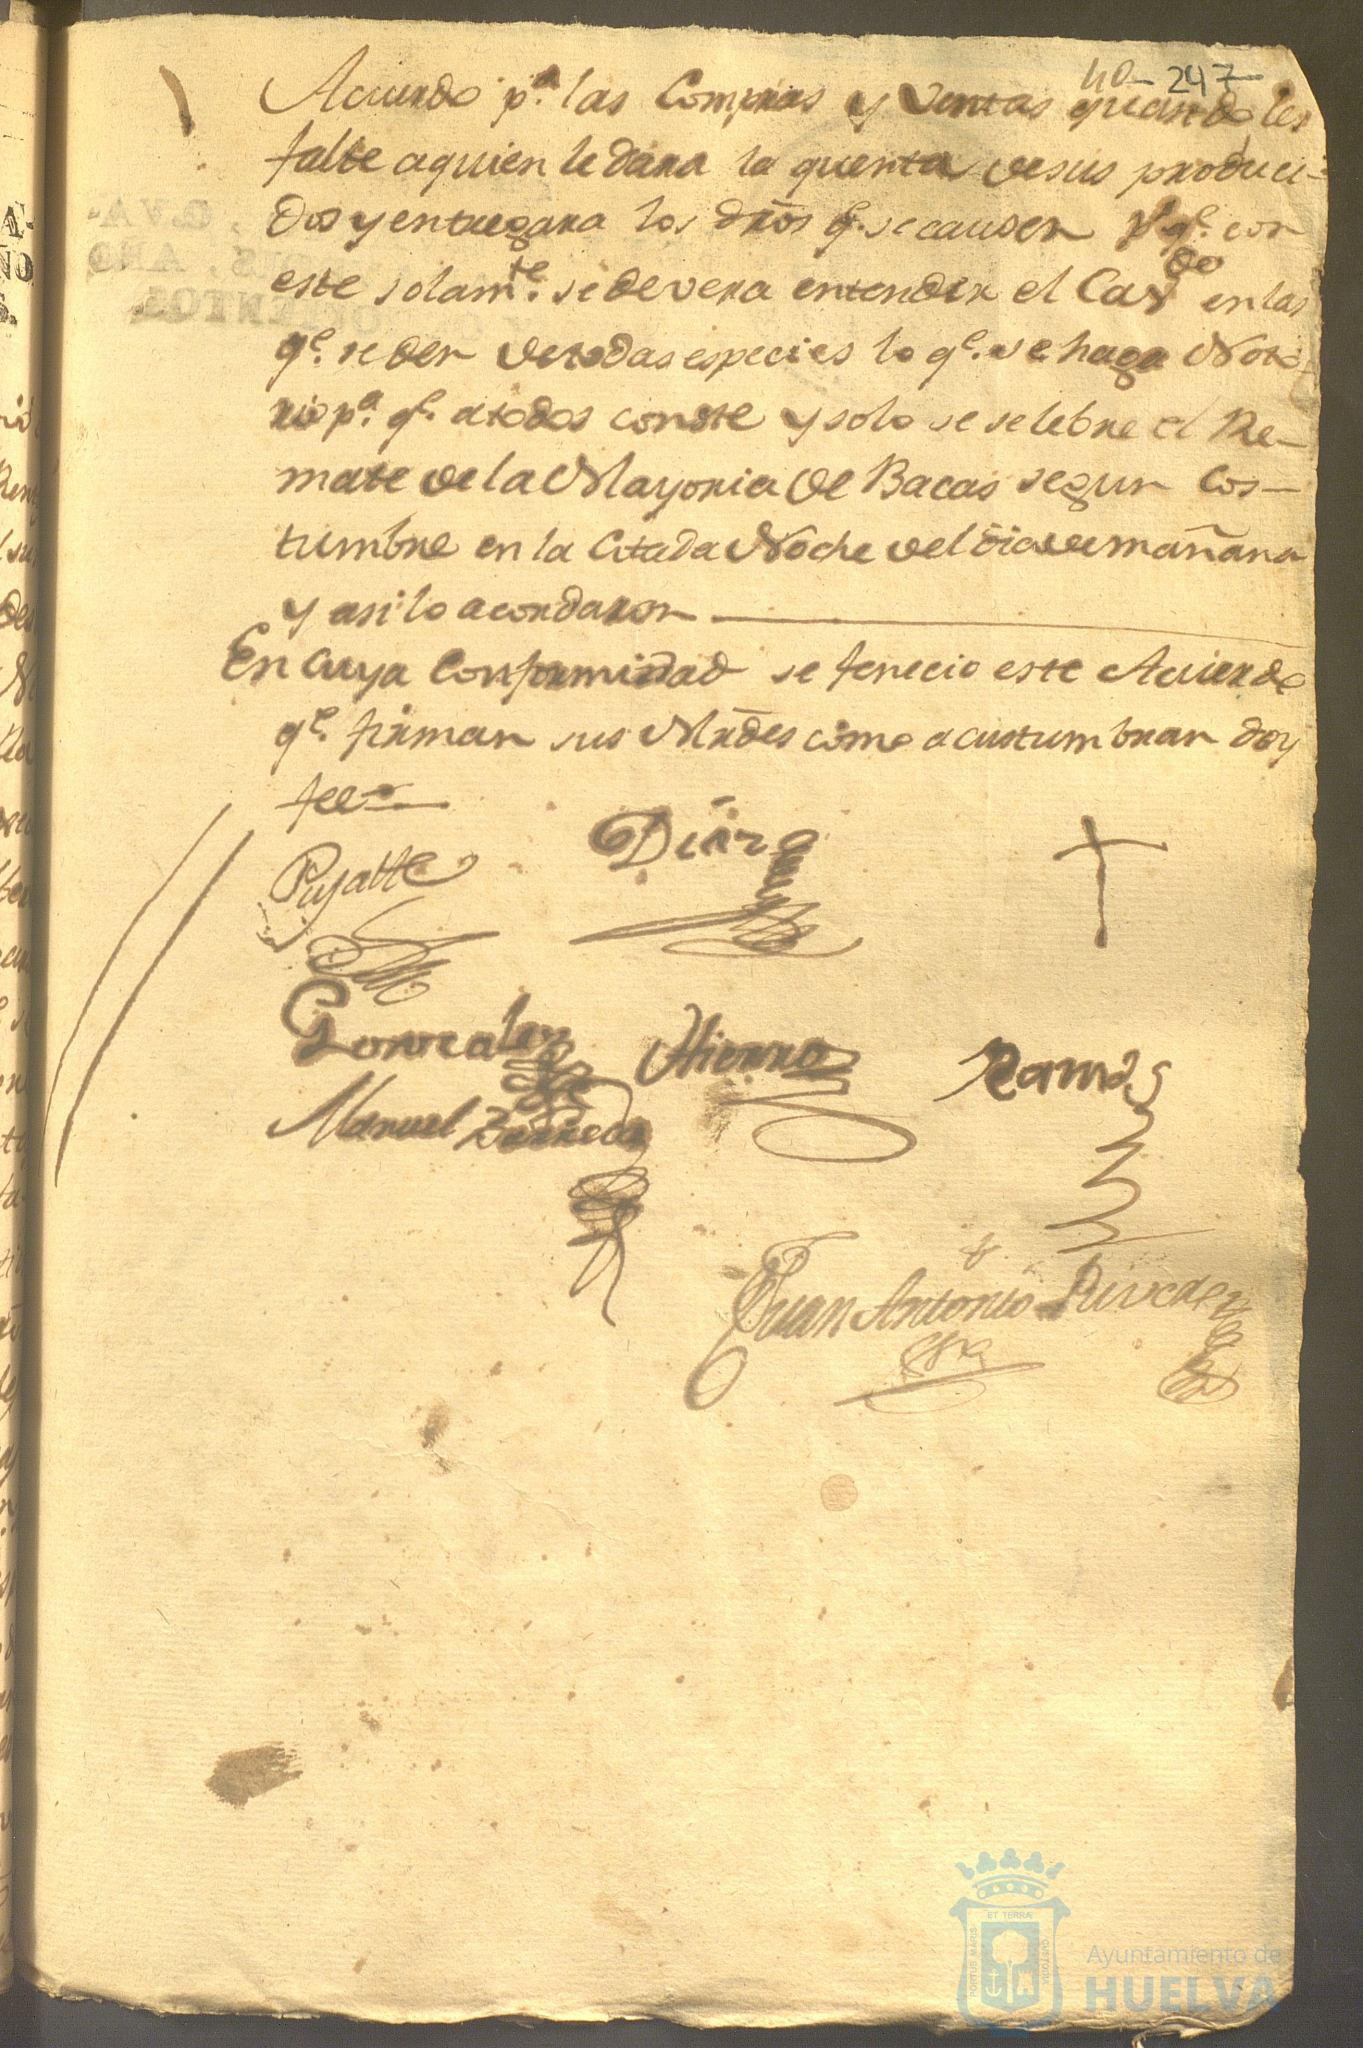 40- 247
Acuerdo p.ª las Compras y Ventas quando les
falte a quien le dara la quenta de sus produci-
dos y entregara los dr̃os q.e se causen p.r q.e con
este solam.te se devera entender el Cav.do en las
q.e se den de todas especies lo q.e se haga Noto-
rio p.ª q.e a todos conste y solo se selebre el Re-
mate de la Mayoria de Bacas segun Cos-
tumbre en la Citada Noche del dia de mañana
y asi lo acordaron
En cuya Conformidad se fenecio este Acuerdo
q.e firman sus Mr̃des como acustumbran doy
fee
Pujalte Diaz
Gonzalez Hierro Ramos
Manuel
Juan Antonio
ss.no
ET TERRÆ
PORTUS MARIS
CUSTODIA
Ayuntamiento de
HUELVA